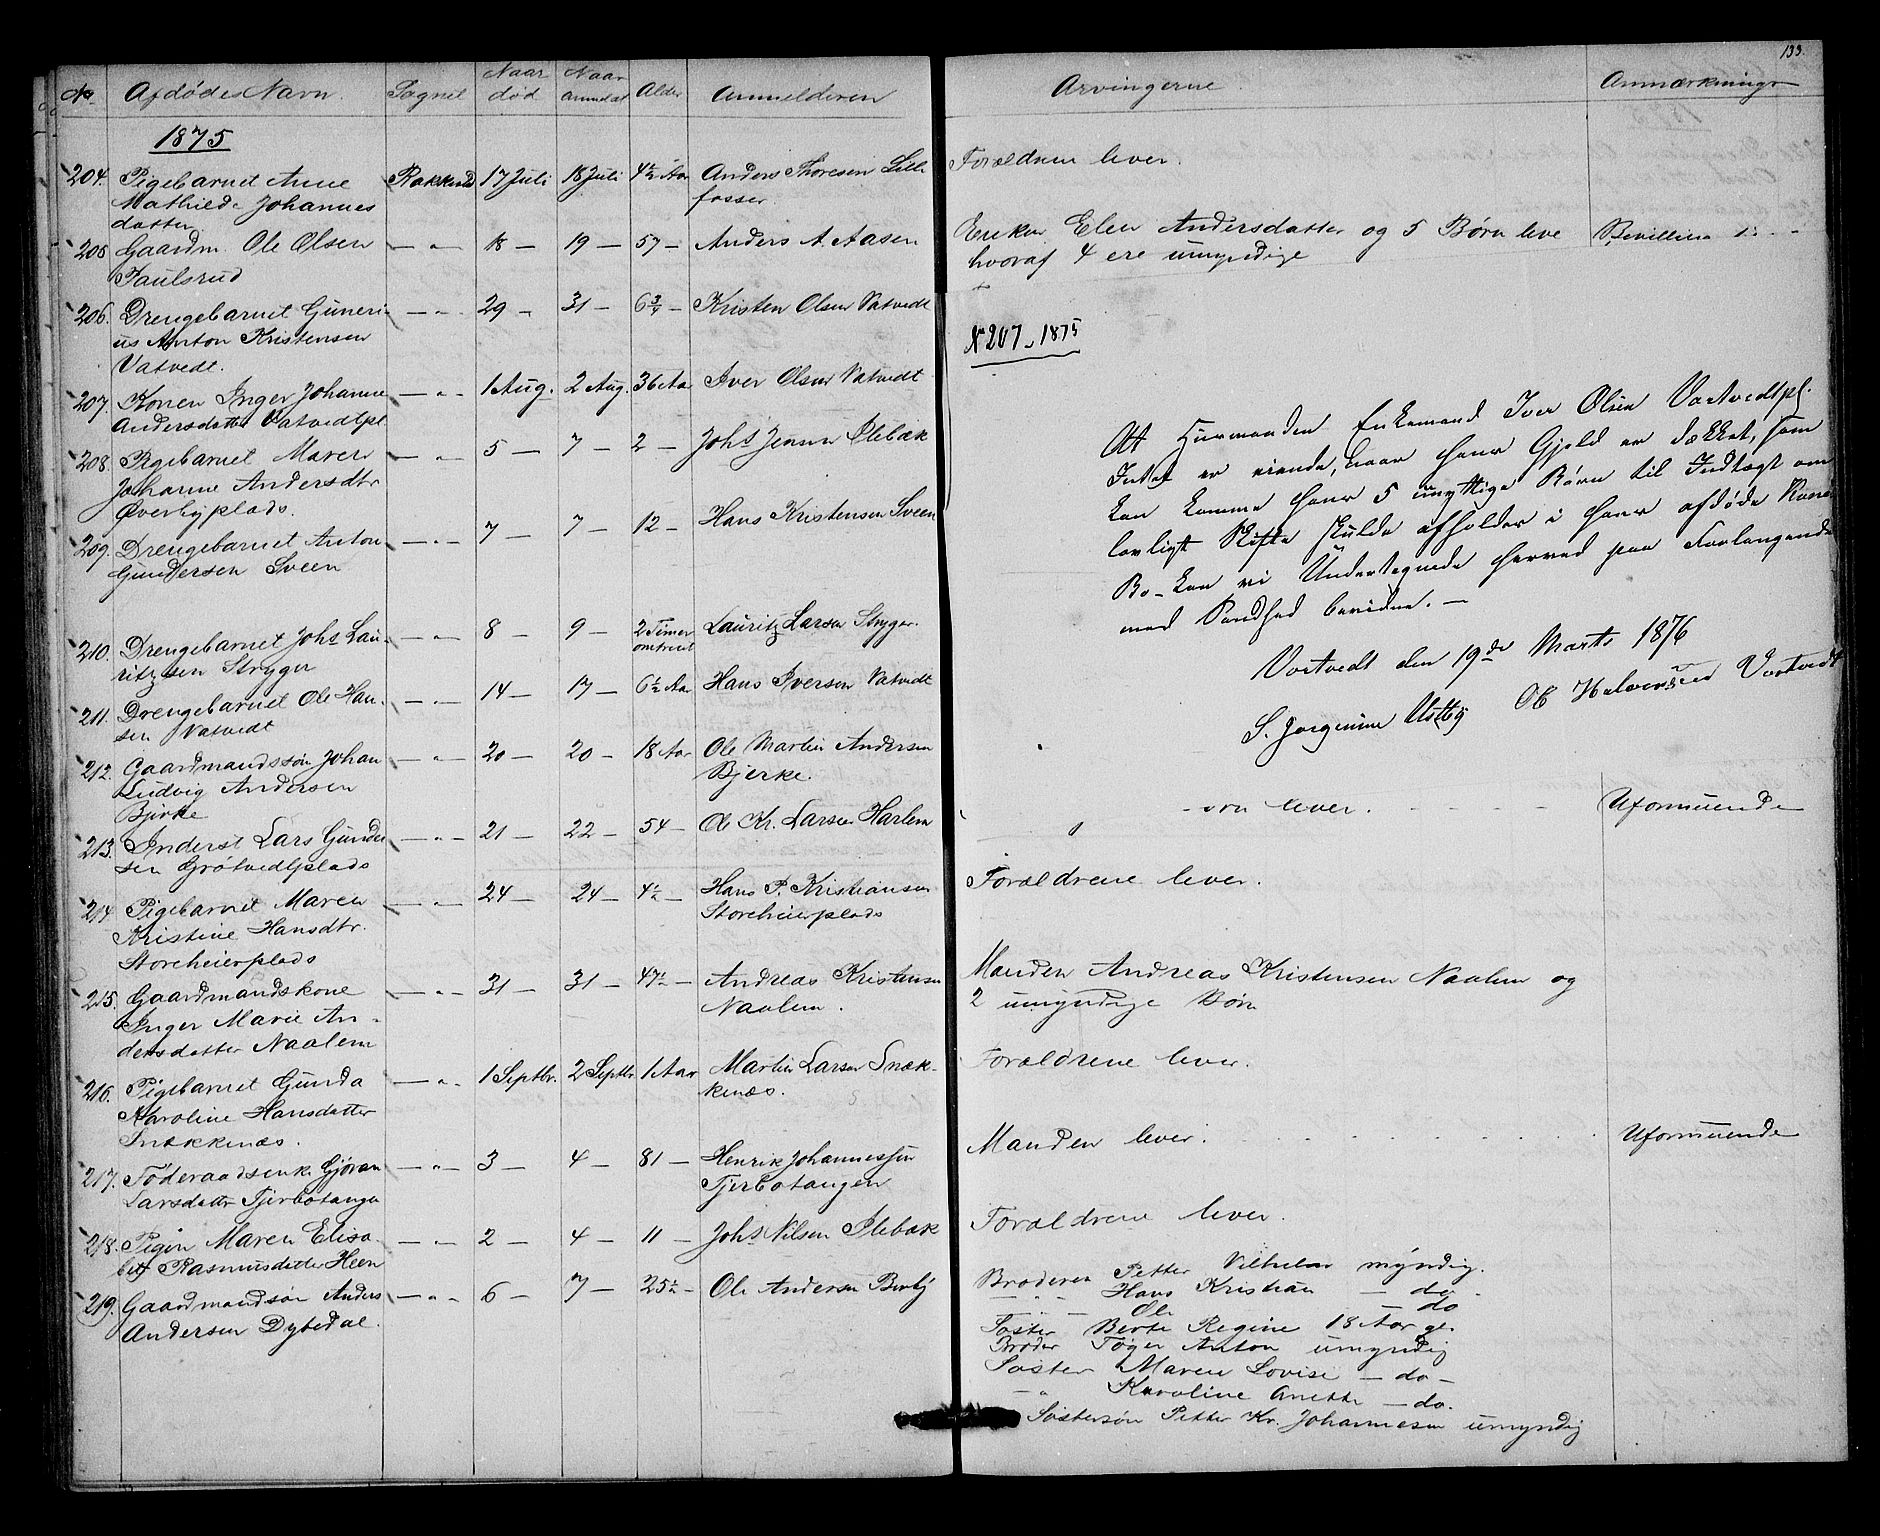 No Afdødes Navn. Sognet Naar død Naar anmeldt Alder Anmelderen
1875
204. Pigebarnet Anne Rakkestad 17 Juli 18 Juli 4½ Aar Anders Thoresen Lille
Mathilde Johannes fosser.
datter
205 Gaardm. Ole Olsen — " — 18 — 19 — 57 — Anders A. Aasen
Paulsrud
206. Drengebarnet Guneri- — " — 29 — 31 — 6¾ — Kristen Olsen Vatvedt
us Anton Kristensen
Vatvedt.
207. Konen Inger Johanne — " — 1 Aug. 2 Aug. 36 Aar Iver Olsen Vatvedt
Andersdatter Vatvedtpl
208. Pigebarnet Maren — " — 5 — 7 — 2 — Johs Jensen Slebæk
Johanne Andersdtr
Øverbyplads.
209. Drengebarnet Anton — " — 7 — 7 — 12 — Hans Kristensen Sveen
Gundersen Sveen
210. Drengebarnet Johs Lau- — " — 8 — 9 — 2 Timer Lauritz Larsen Stryger
ritzsen Stryger omtrent
211. Drengebarnet Ole Han- — " — 14 — 17 — 6½ Aar Hans Iversen Vatvedt
sen Vatvedt
212. Gaardmandssøn Johan — " — 20 — 20 — 18 Aar Ole Martin Andersen
Ludvig Andersen Bjerke.
Bjerke
213. Inderst Lars Gunder — " — 21 — 22 — 54 — Ole Kr. Larsen Harlem
sen Grøtvedtplads
214 Pigebarnet Maren — " — 24 — 24 — 4½ — Hans P. Kristiansen
Kristine Hansdtr. Storeheierplads
Storeheierplads
215. Gaardmandskone — " — 31 — 31 — 47½ — Andreas Kristensen
Inger Marie An- Naalem.
dersdatter Naalem
216. Pigebarnet Gunda — " — 1 Septbr. 2 Septbr. 1 Aar Martin Larsen Snæk-
Karoline Hansdatter kenæs.
Snækkenæs.
217. Føderaadsenke Gjøran — " — 3 — 4 — 81 — Henrik Johannessen
Larsdatter Tjerbotangen Tjerbotangen
218. Pigen Maren Elisa- — " — 2 — 4 — 11 — Johs Nilsen Slebæk
bet Rasmusdatter Heen
219. Gaardmandsøn Anders — " — 6 — 7 — 25½ — Ole Andersen Berby
Andersen Dybedal.
133.
Arvingerne. Anmærkninger
Forældrene lever.
Enken Elen Andersdatter og 5 Børn leve Bevilling
hvoraf 4 ere umyndige
N 207 - 1875
At Huusmanden Enkemand Iver Olsen Vortvedtpl.
Intet er eiende, naar hans Gjeld er dækket, som
kan komme hans 5 umyttige Børn til Indtægt om
lovligt Skifte skulde afholdes i hans afdøde Kones
Bo - kan vi Undertegnede herved paa Forlangende
med Sandhed bevidne. —
Vortvedt den 19de Marts 1876
S. Jørgensen Ustby Ole Halvorsen Vortvedt
lever. Uformuende
Forældrene lever.
Manden Andreas Kristensen Naalem og
2 umyndige Børn
Forældrene lever.
Manden lever. Uformuende
Forældrene lever.
Broderen Petter Vilhelm myndig.
— " — Hans Kristian — do -
— " — Ole — do
Søster Berte Regine 18 Aar gl.
Broder Tøger Anton umyndig
Søster Maren Lovise — do —
— " Karoline Anette — do.
Søstersøn Petter Kr. Johannesen umyndig